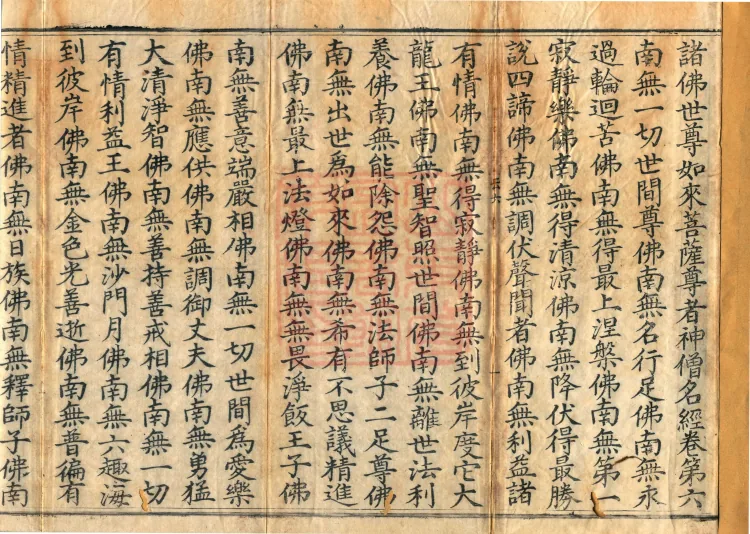 諸佛世尊如來菩薩尊者神僧名經卷第六
南無一切世間尊佛南無名行足佛南無永
過輪迴苦佛南無得最上涅槃佛南無第一
寂靜樂佛南無得清涼佛南無降伏得最勝
說四諦佛南無調伏聲聞者佛南無利益諸
有情佛南無得寂靜佛南無到彼岸度它大
龍王佛南無聖智照世間佛南無離世法利
養佛南無能除怨佛南無法師子二足尊佛
南無出世為如來佛南無希有不思議精進
佛南無最上法燈佛南無無畏淨飯王子佛
南無善意端嚴相佛南無一切世間為愛樂
佛南無應供佛南無調御丈夫佛南無勇猛
大清淨智佛南無善持善戒相佛南無一切
有情利益王佛南無沙門月佛南無六趣海
到彼岸佛南無金色光善逝佛南無普徧有
情精進者佛南無日族佛南無釋師子佛南